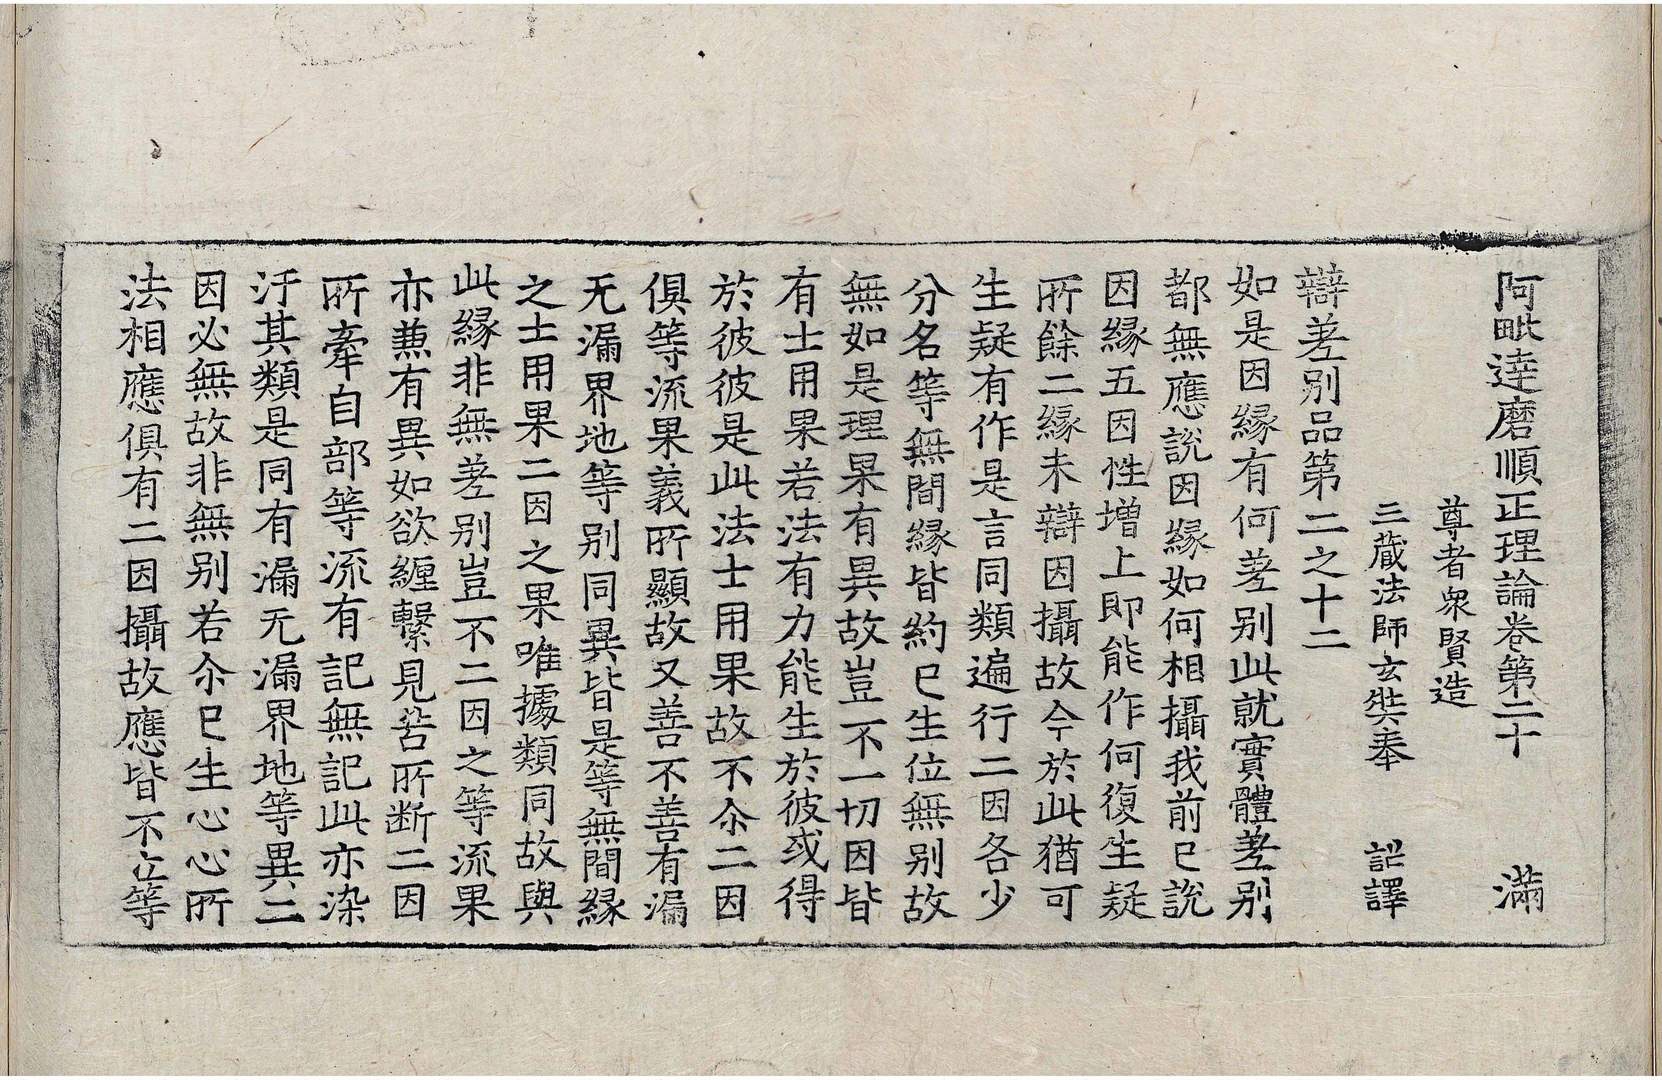 阿毗達磨順正理論卷第二十 滿
尊者衆賢造
三藏法師玄奘奉 詔譯
辯差別品第二之十二
如是因緣有何差別此就實體差別
都無應說因緣如何相攝我前已說
因緣五因性增上即能作何復生疑
所餘二緣未辯因攝故今於此猶可
生疑有作是言同類遍行二因各少
分名等無間緣皆約已生位無別故
無如是理果有異故豈不一切因皆
有士用果若法有力能生於彼或得
於彼彼是此法士用果故不尒二因
俱等流果義所顯故又善不善有漏
无漏界地等別同異皆是等無間緣
之士用果二因之果唯據類同故與
此緣非無差別豈不二因之等流果
亦兼有異如欲纏繫見苦所断二因
所牽自部等流有記無記此亦染
汙其類是同有漏无漏界地等異二
因必無故非無別若尒已生心心所
法相應俱有二因攝故應皆不立等